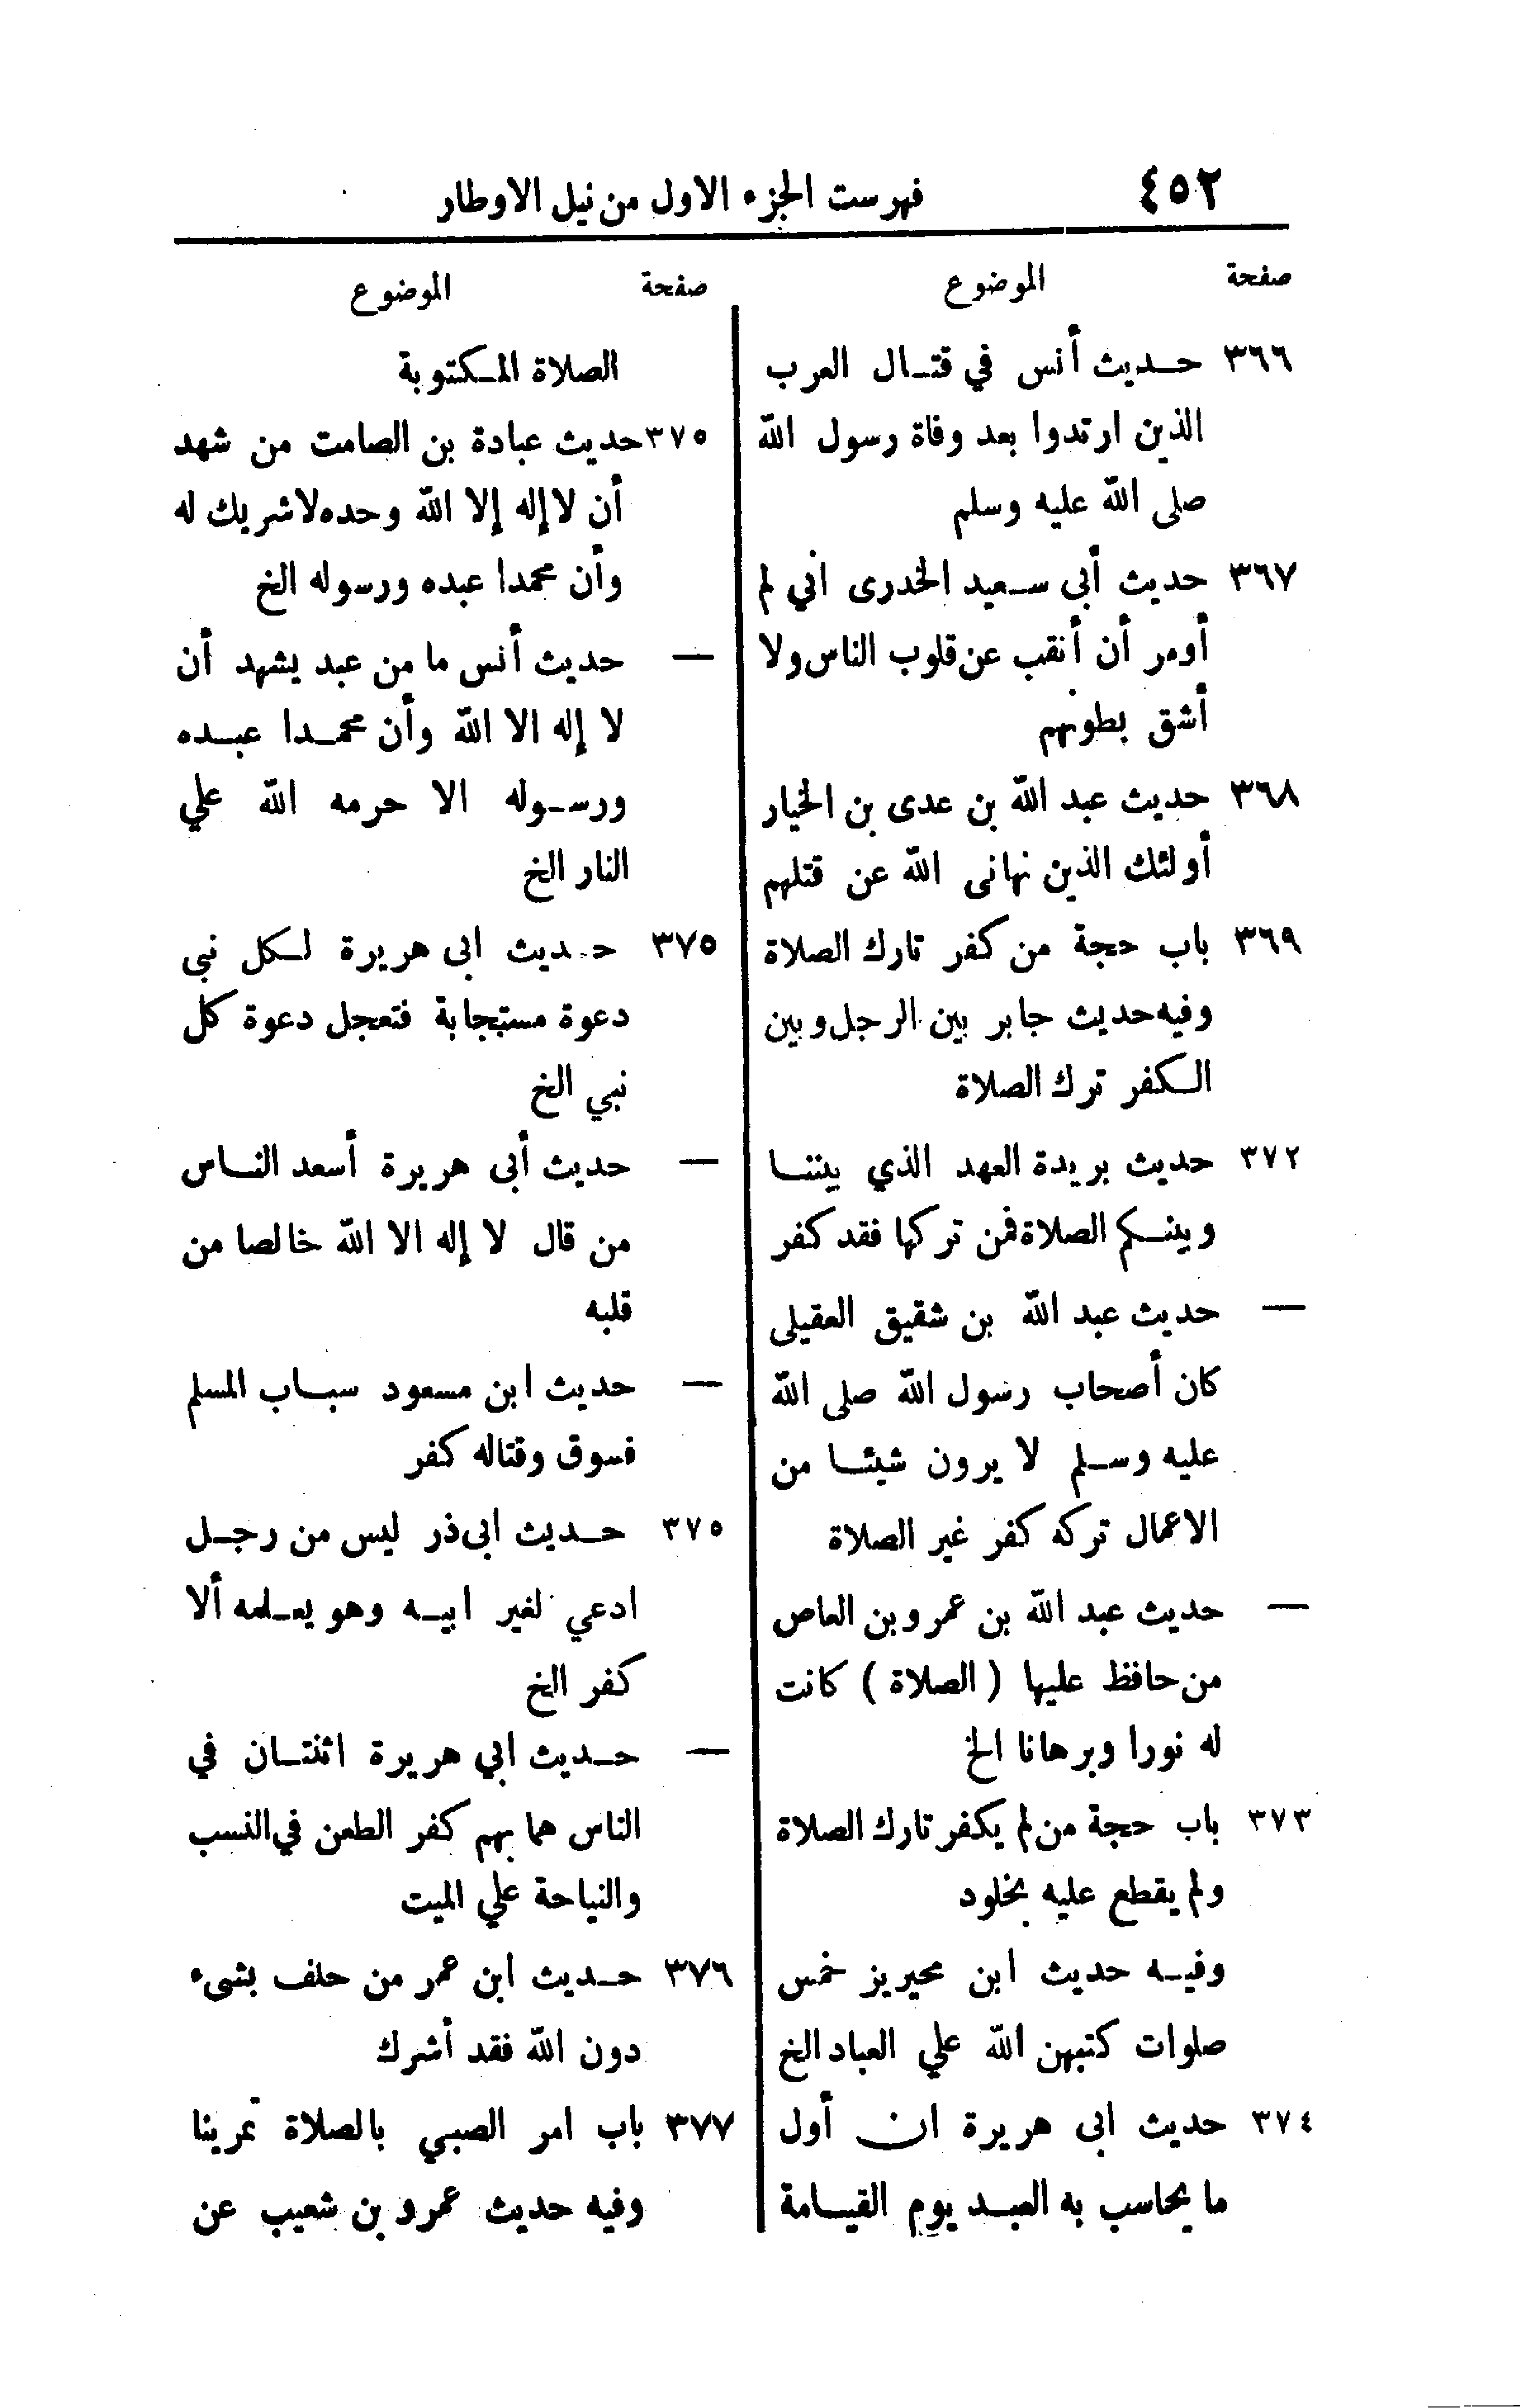 ٤٥٢
فهرست الجزء الاول من نيل الاوطار
صفحة الموضوع
٣٦٦ حديث أنس في قتال العرب
الذين ارتدوا بعد وفاة رسول الله
صلى الله عليه وسلم
٣٦٧ حديث أبى سعيد الخدرى اني لم
أومر أن أنقب عن قلوب الناس ولا
أشق بطونهم
٣٦٨ حديث عبد الله بن عدى بن الخيار
أولئك الذين نهانى الله عن قتلهم
٣٦٩ باب حجة من كفر تارك الصلاة
وفيه حديث جابر بين الرجل وبين
الكفر ترك الصلاة
٣٧٢ حديث بريدة العهد الذي بيننا
وبينكم الصلاة فمن تركها فقد كفر
— حديث عبد الله بن شقيق العقيلى
كان أصحاب رسول الله صلى الله
عليه وسلم لا يرون شيئا من
الاعمال تركه كفر غير الصلاة
— حديث عبد الله بن عمرو بن العاص
من حافظ عليها ( الصلاة ) كانت
له نورا وبرهانا الخ
٣٧٣ باب حجة من لم يكفر تارك الصلاة
ولم يقطع عليه بخلود
وفيه حديث ابن محيريز خمس
صلوات كتبهن الله علي العباد الخ
٣٧٤ حديث ابى هريرة ان أول
ما يحاسب به العبد يوم القيامة
صفحة الموضوع
الصلاة المكتوبة
٣٧٥ حديث عبادة بن الصامت من شهد
أن لا إله إلا الله وحده لا شريك له
وأن محمدا عبده ورسوله الخ
— حديث أنس ما من عبد يشهد أن
لا إله الا الله وأن محمدا عبده
ورسوله الا حرمه الله علي
النار الخ
٣٧٥ حديث ابى هريرة لكل نبى
دعوة مستجابة فتعجل دعوة كل
نبي الخ
— حديث أبى هريرة أسعد الناس
من قال لا إله الا الله خالصا من
قلبه
— حديث ابن مسعود سباب المسلم
فسوق وقتاله كفر
٣٧٥ حديث ابى ذر ليس من رجل
ادعي لغير ابيه وهو يعلمه ألا
كفر الخ
— حديث ابي هريرة اثنتان في
الناس هما بهم كفر الطعن في النسب
والنياحة علي الميت
٣٧٦ حديث ابن عمر من حلف بشىء
دون الله فقد أشرك
٣٧٧ باب امر الصبي بالصلاة تمرينا
وفيه حديث عمرو بن شعيب عن